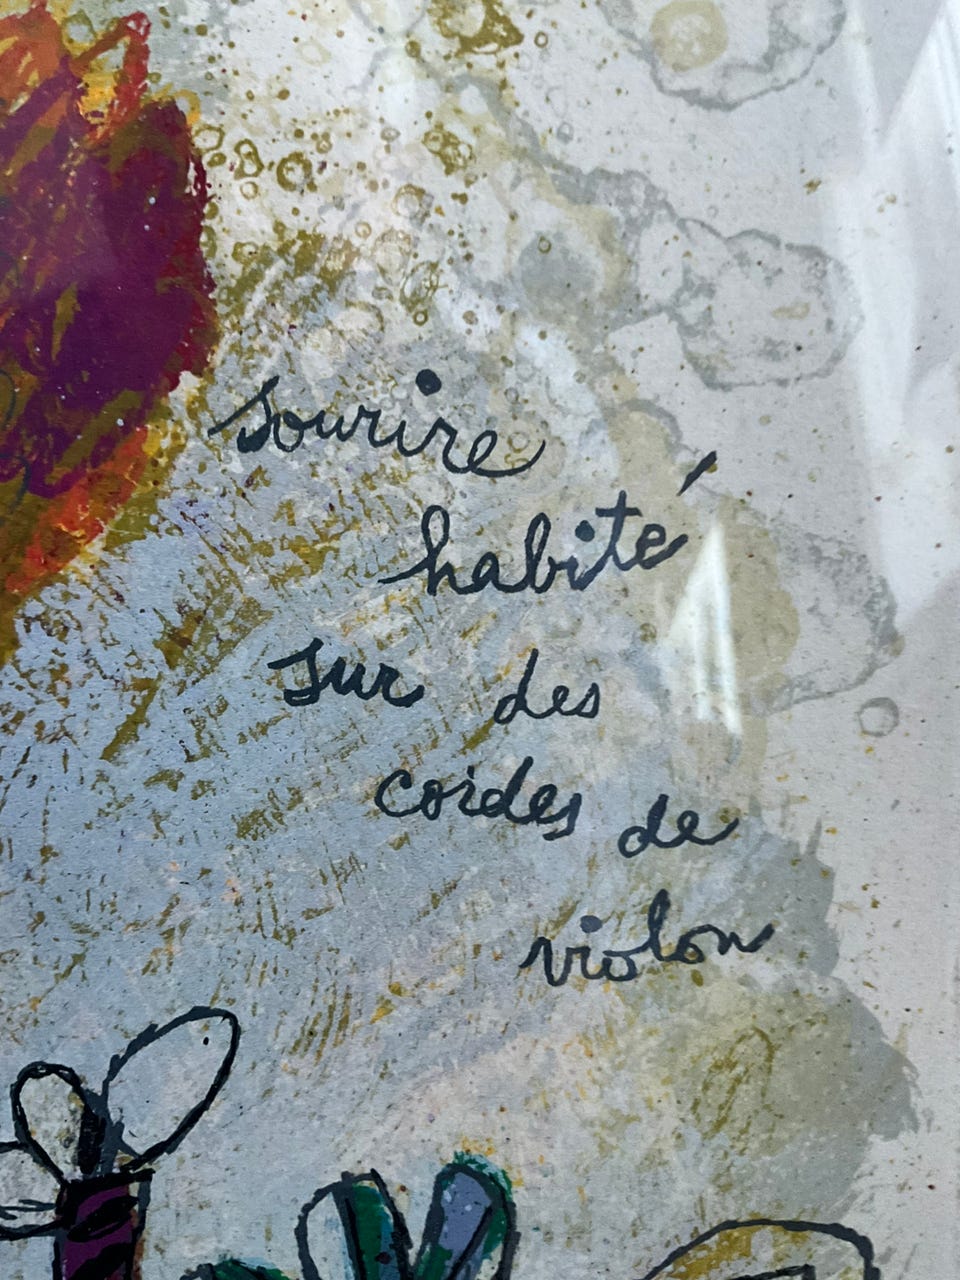 sourire
habité
sur des
cordes de
violon